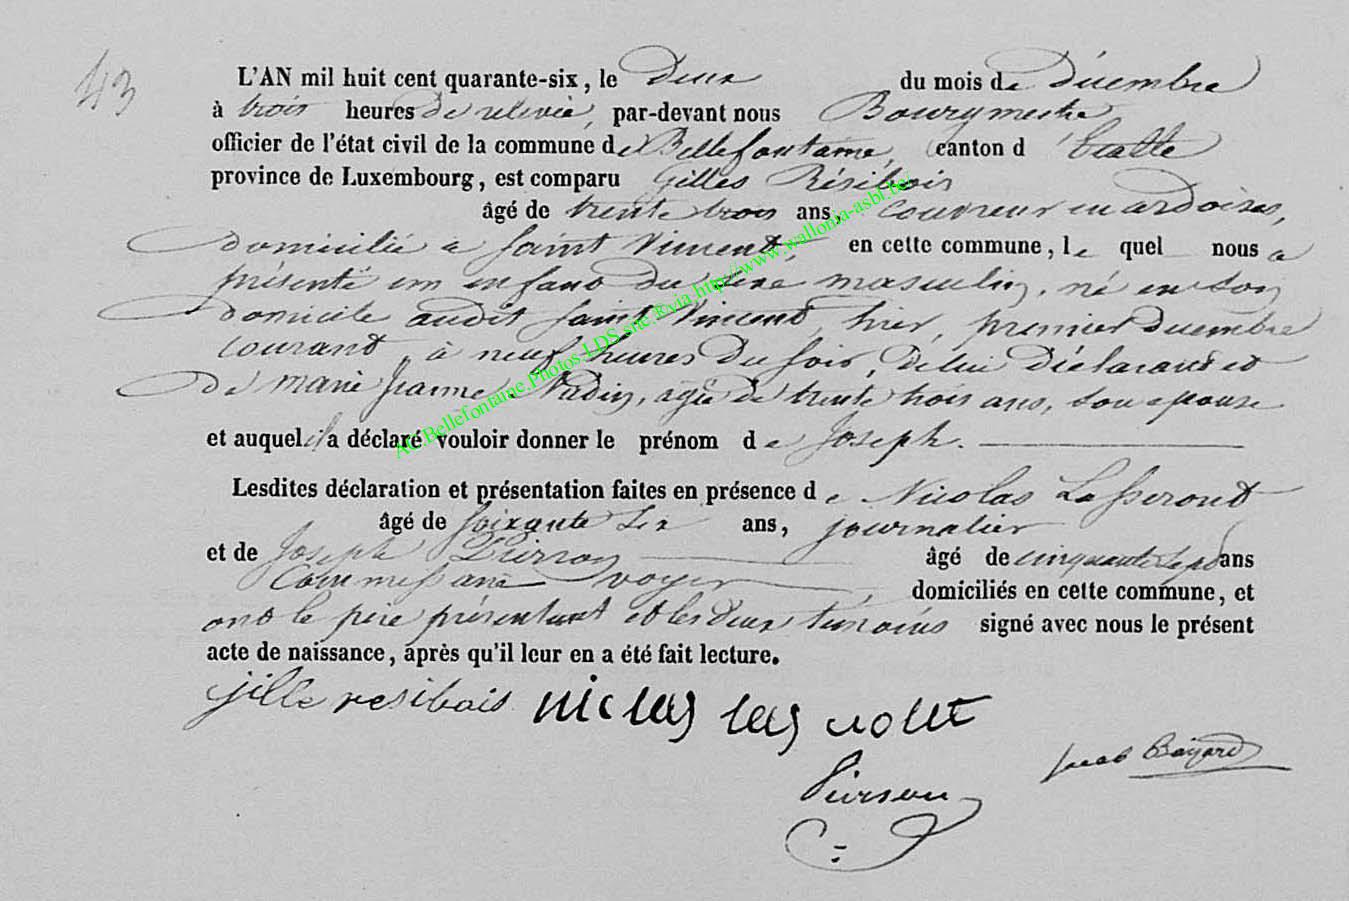 43
L'AN mil huit cent quarante-six, le deux du mois de Décembre
à trois heures de relevée, par-devant nous Bourgmestre
officier de l'état civil de la commune de Bellefontaine, canton d'Etalle
province de Luxembourg, est comparu Gilles Résibois
âgé de trente trois ans, couvreur en ardoises,
domicilié à Saint Vincent en cette commune, lequel nous a
présenté un enfant du sexe masculin, né en son
Domicile audit Saint Vincent, hier, premier décembre
courant, à neuf heures du soir, de lui Déclarant et
de Marie Jeanne Nadin, agée de trente trois ans, son epouse
et auquel il a déclaré vouloir donner le prénom de Joseph.
Lesdites déclaration et présentation faites en présence de Nicolas
âgé de soixante six ans, journalier
et de Joseph Pierson âgé de cinquante sept ans
Commissaire voyer, domiciliés en cette commune, et
ont le père présentant et les deux témoins signé avec nous le présent
acte de naissance, après qu'il leur en a été fait lecture.
jille resibois niclas
Jacob Bayard
Pierson
AC.Bellefontaine.Photos.LDS.site.®via.http://www.wallonia-asbl.be/